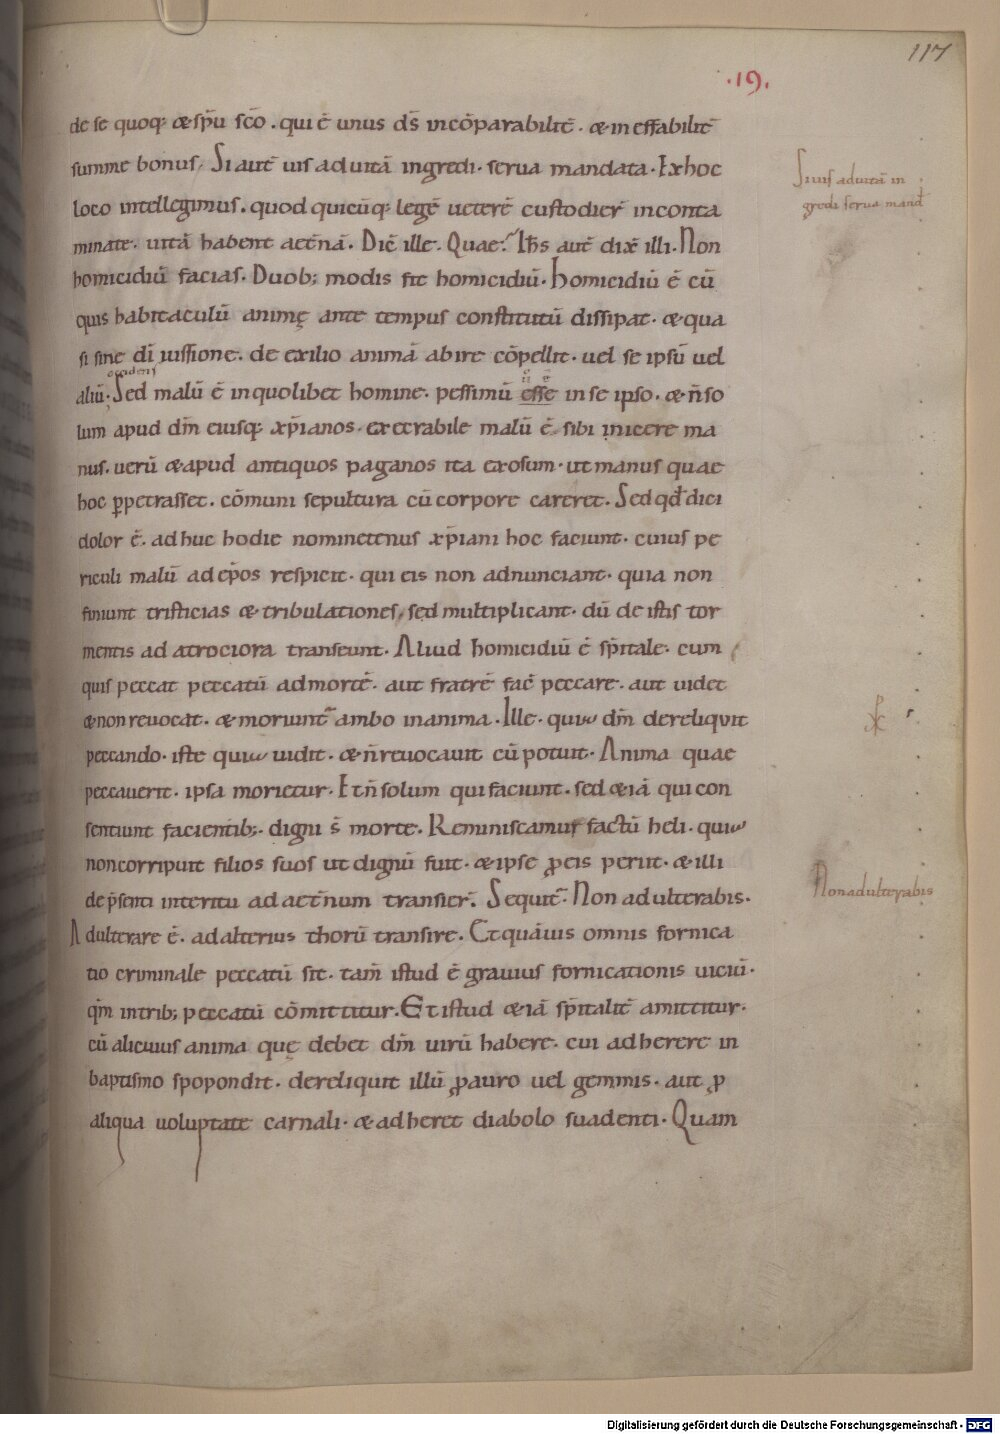 117
.19.
de se quoq; & sp̄u sc̄o. qui ē unus ds̄ incōparabilit̄. & ineffabilit̄
summe bonus. Si aut̄ uis ad uitā ingredi. serua mandata. Ex hoc
Si uis ad uitā in
loco intellegimus. quod quicūq; legē ueterē custodier̄ inconta
gredi serua mand
minate. uitā habent aet̄nā. Dic̄ ille. Quae? Ih̄s aut̄ dix̄ illi. Non
homicidiū facias. Duob; modis fit homicidiū. Homicidiū ē cū
quis habitaculū animę ante tempus constitutū dissipat. & qua
si sine dī iussione. de exilio animā abire cōpellit. uel se ipsū uel
occidens
aliū. Sed malū ē in quolibet homine. pessimū esse in se ipso. & n̄ so
lum apud dm̄ eiusq; xp̄ianos. execrabile malū ē sibi inicere ma
nus. uerū & apud antiquos paganos ita exosum. ut manus quae
hoc ꝑpetrasset. cōmuni sepultura cū corpore careret. Sed qđ dici
dolor ē. adhuc hodie nominetenus xp̄iani hoc faciunt. cuius pe
riculi malū ad ep̄os respicit. qui eis non adnunciant. quia non
finiunt tristicias & tribulationes, sed multiplicant. dū de istis tor
mentis ad atrociora transeunt. Aliud homicidiū ē sp̄itale. cum
quis peccat peccatū ad mortē. aut fratrē fac̄ peccare. aut uidet
& non reuocat. & moriunt̄ ambo in anima. Ille. quia dm̄ dereliquit
peccando. iste quia uidit. & n̄ reuocauit cū potuit. Anima quae
peccauerit. ipsa morietur. Et n̄ solum qui faciunt. sed & iā qui con
sentiunt facientib;. digni s̄ morte. Reminiscamur factū heli. quia
non corripuit filios suos ut dignū fuit. & ipse ꝓ eis periit. & illi
de p̄senti interitu ad aet̄num transier̄. Sequit̄. Non adulterabis.
Non adulterabis
Adulterare ē. ad alterius thorū transire. Et quāuis omnis fornica
tio criminale peccatū sit. tam̄ istud ē grauius fornicationis uiciū.
qm̄ in trib; peccatū cōmittitur. Et istud & iā sp̄italit̄ amittitur.
cū alicuius anima quę debet dm̄ uirū habere. cui adherere in
baptismo spopondit. dereliquit illū ꝓ auro uel gemmis. aut ꝓ
aliqua uoluptate carnali. & adheret diabolo suadenti. Quam
Digitalisierung gefördert durch die Deutsche Forschungsgemeinschaft - DFG